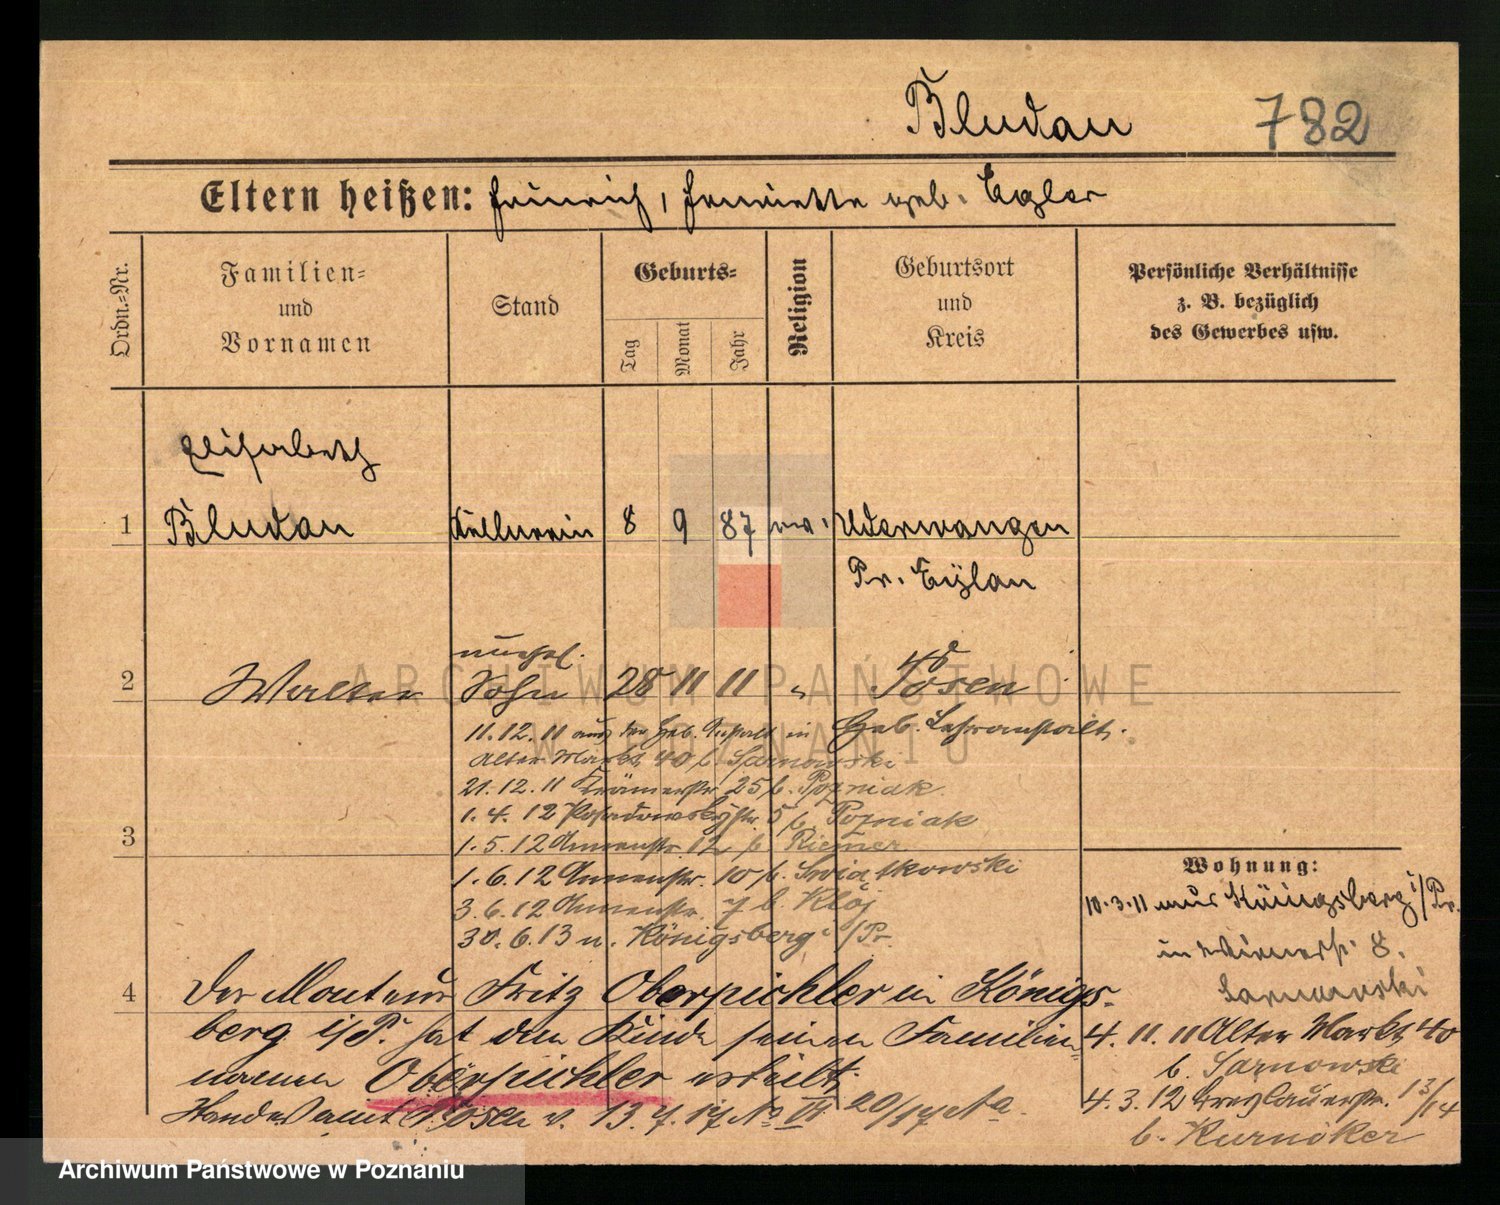 Bludau 782
Eltern heißen: Heinrich, Henriette geb. Egler
Ordn.=Nr.
Familien=
und
Vornamen
Stand
Geburts=
Tag
Monat
Jahr
Religion
Geburtsort
und
Kreis
Persönliche Verhältnisse
z. B. bezüglich
des Gewerbes usw.
Elisabeth
1 Bludau Kellnerin 8 9 87 ev. Uderwangen
Pr. Eylau
unehel.
2 Walter Sohn 28 11 11 " Posen
11.12.11 aus der Geb. Anstalt in Geb. Lehranstalt.
Alter Markt 40 b. Sarnowski
21.12.11 Krämerstr. 25 b. Pozniak
1.4.12 Posadowskystr. 5 b. Pozniak
3
1.5.12 Annenstr. 12 b. Riemer
1.6.12 Annenstr. 10 b. Swiatkowski
3.6.12 Annenstr. 7 b. Klój
30.6.13 n. Königsberg i/Pr.
Wohnung:
10.3.11 aus Königsberg i/Pr.
in 8.
Sarnowski
4. 11. 11 Alter Markt 40
b. Sarnowski
4. 3. 12 Breslauerstr. 13/14
b. Kurnöker
4 Der Monteur Fritz Oberpichler in Königs-
berg i/P. hat dem Kinde seinen Familien-
namen Oberpichler erteilt.
Standesamt Posen v. 13.7.17 No VII 20/17
ARCHIWUM PAŃSTWOWE
W POZNANIU
Archiwum Państwowe w Poznaniu